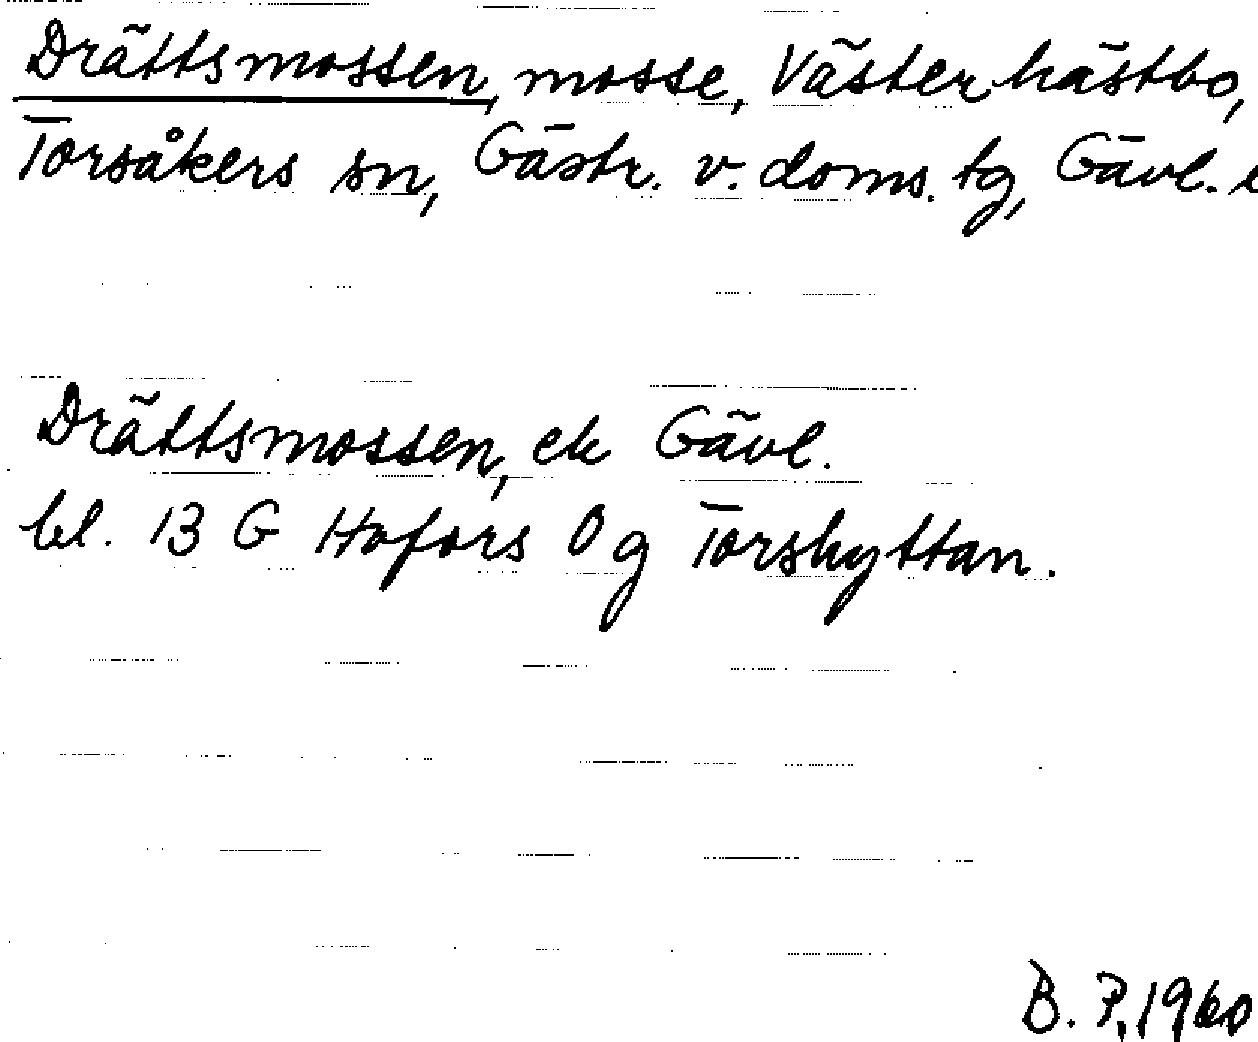 Drättsmossen, mosse, Västerhästbo,
Torsåkers sn, Gästr. v. doms. tg, Gävl.
Drättsmossen, ek Gävl.
bl. 13 G Hofors 0 g Torshyttan.
B. P, 1960